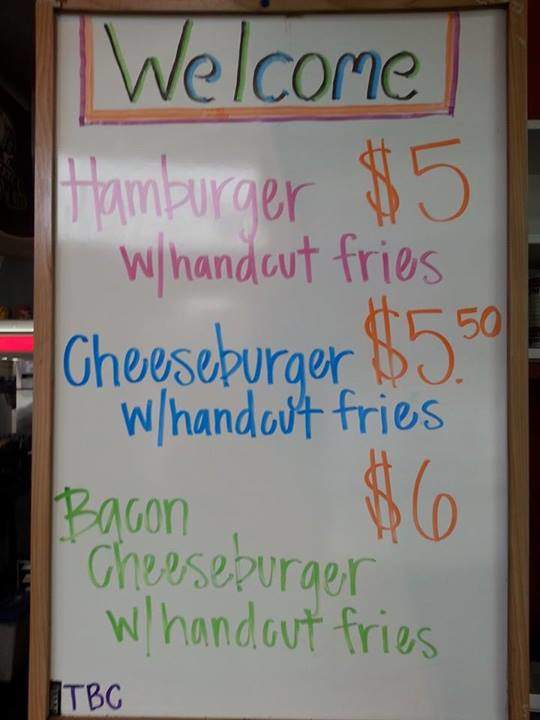 Welcome
Hamburger $5
w/handcut fries
Cheeseburger $5.50
w/handcut fries
Bacon $6
Cheeseburger
w/handcut fries
TBC